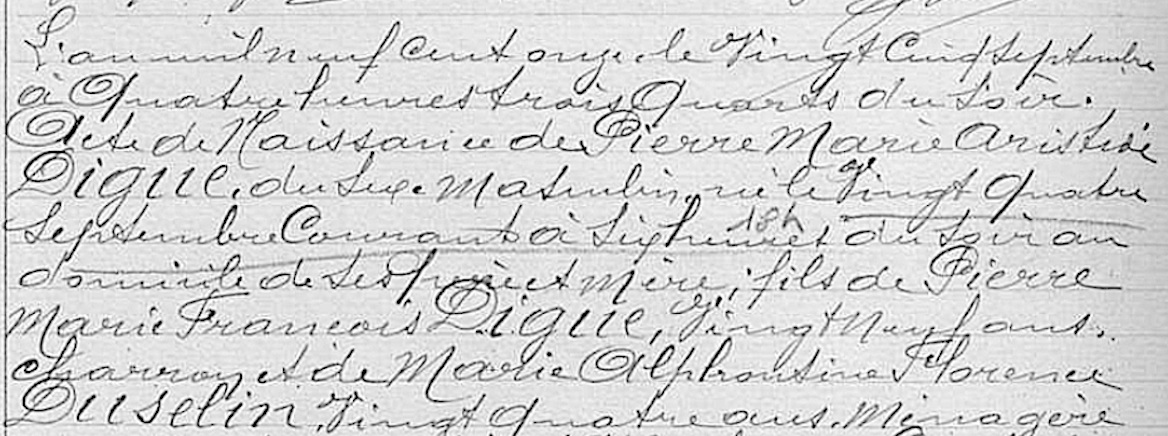 L'an mil neuf cent onze, le Vingt Cinq Septembre
à Quatre heures trois Quarts du Soir.
Acte de Naissance de Pierre Marie Aristide
DIGUE, du Sexe Masculin, né le Vingt Quatre
Septembre Courant à Six heures 18h du Soir au
domicile de Ses père et Mère; fils de Pierre
Marie François DIGUE, Vingt Neuf ans,
charron, et de Marie Alphonsine Florence
DUSELIN, Vingt Quatre ans, Ménagère